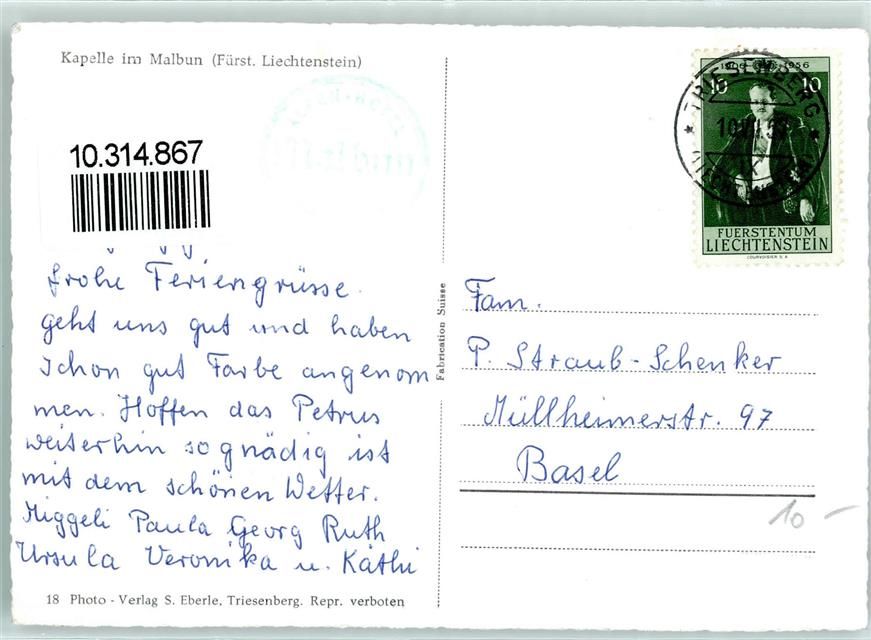 Kapelle im Malbun (Fürst. Liechtenstein)
10.314.867
Frohe Feriengrüsse.
geht uns gut und haben
schon gut Farbe angenom
men. Hoffen das Petrus
weiterhin so gnädig ist
mit dem schönen Wetter.
Miggeli Paula Georg Ruth
Ursula Veronika u. Käthi
18 Photo - Verlag S. Eberle, Triesenberg. Repr. verboten
Fabrication Suisse
1906 1956
10 10
TRIESENBERG
FUERSTENTUM
LIECHTENSTEIN
COURVOISIER S.A.
Fam.
P. Straub-Schenker
Müllheimerstr. 97
Basel
10 -